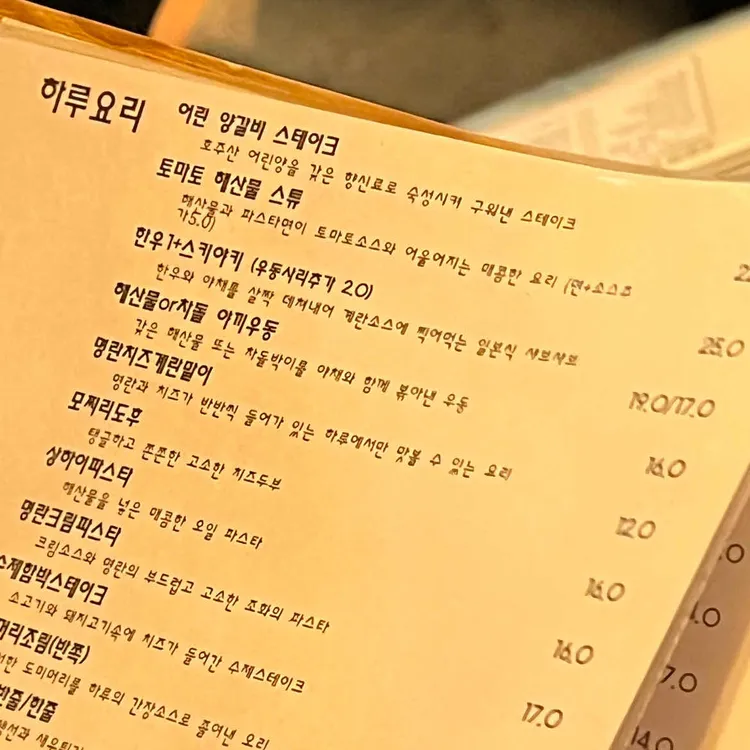 하루요리
어린 양갈비 스테이크
호주산 어린양을 갖은 향신료로 숙성시켜 구워낸 스테이크
토마토 해산물 스튜
해산물과 파스타면이 토마토소스와 어울어지는 매콤한 요리 (면+소스추
가5.0)
25.0
한우1+스키야키 (우동사리추가 2.0)
한우와 야채를 살짝 데쳐내어 계란소스에 찍어먹는 일본식 샤브샤브
19.0/17.0
해산물or차돌 야끼우동
갖은 해산물 또는 차돌박이를 야채와 함께 볶아낸 우동
16.0
명란치즈계란말이
명란과 치즈가 반반씩 들어가 있는 하루에서만 맛볼 수 있는 요리
12.0
모찌리도후
탱글하고 쫀쫀한 고소한 치즈두부
16.0
상하이파스타
해산물을 넣은 매콤한 오일 파스타
16.0
명란크림파스타
크림소스와 명란의 부드럽고 고소한 조화의 파스타
17.0
수제함박스테이크
소고기와 돼지고기속에 치즈가 들어간 수제스테이크
머리조림(반쪽)
도미머리를 하루의 간장소스로 졸여낸 요리
반줄/한줄
7.0
14.0